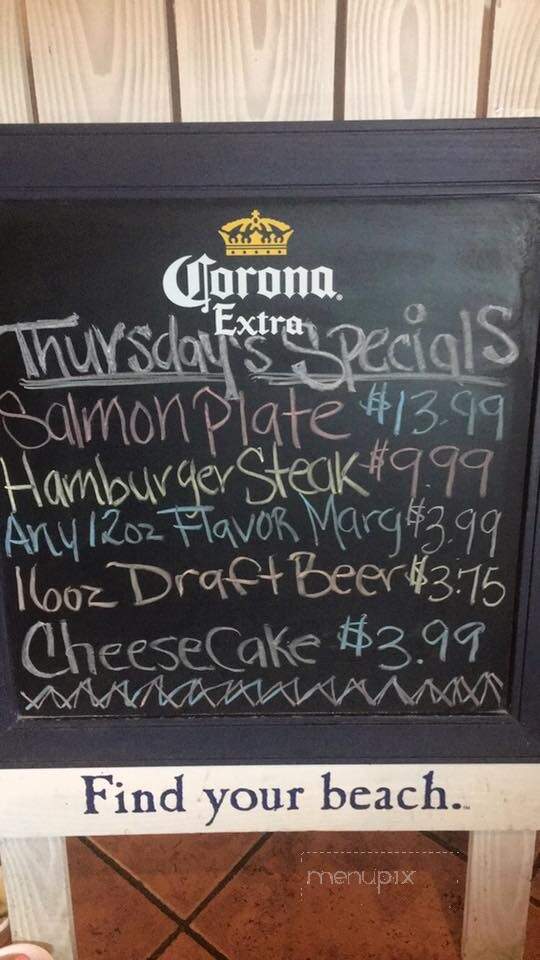 Corona.
Extra
Thursday's Specials
Salmon Plate $13.99
Hamburger Steak $9.99
Any 12oz Flavor Marg $3.99
16oz Draft Beer $3.75
CheeseCake $3.99
Find your beach.
menupix